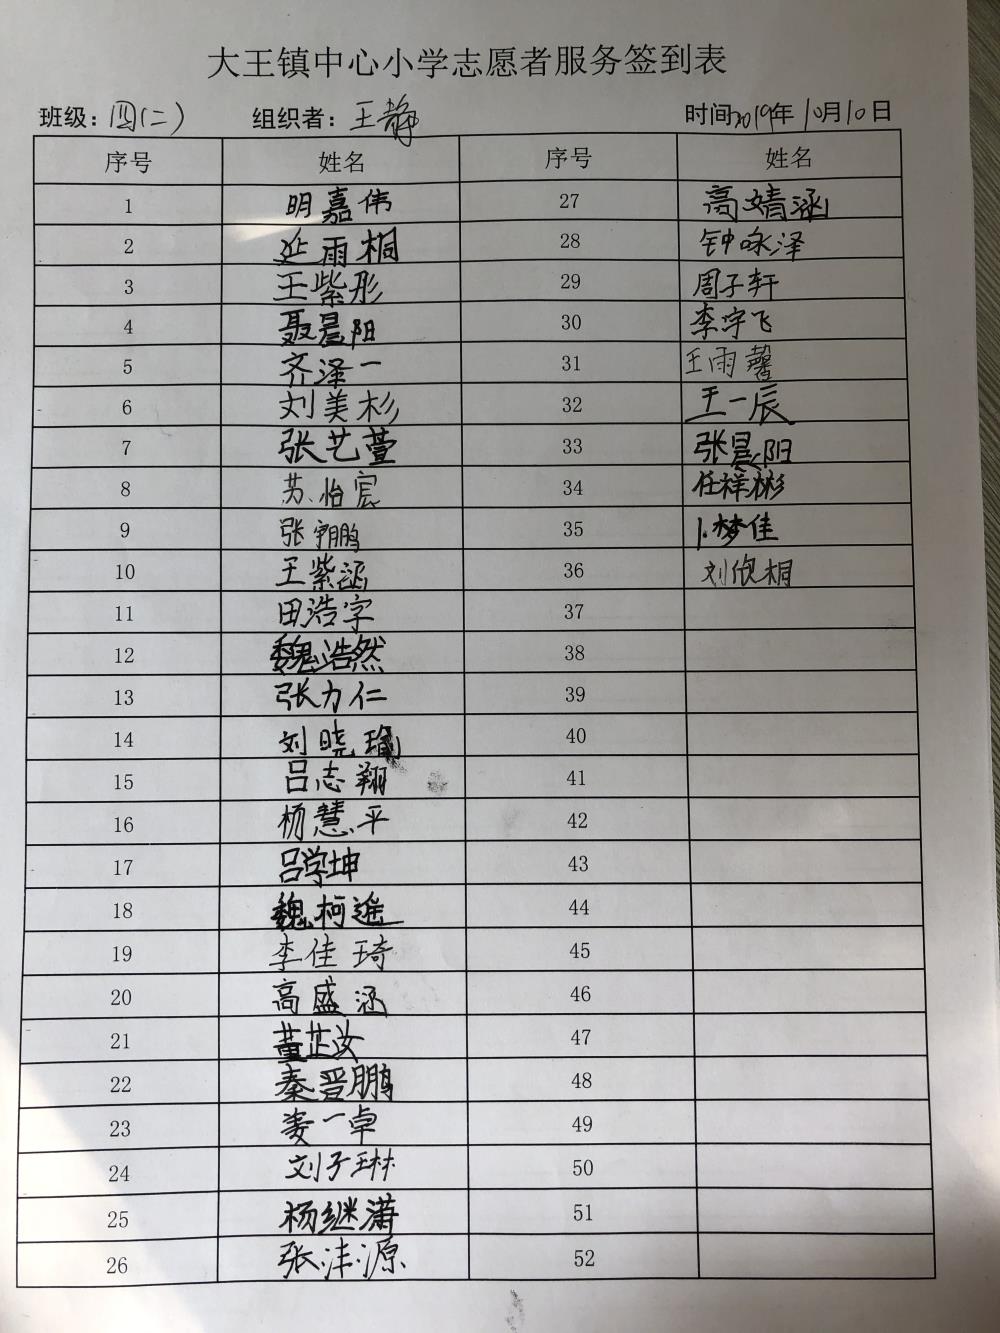 大王镇中心小学志愿者服务签到表
班级：四(二) 组织者：王静 时间2019年10月10日
序号 姓名 序号 姓名
1 明嘉伟 27 高婧涵
2 延雨桐 28 钟咏泽
3 王紫彤 29 周子轩
4 聂晨阳 30 李宇飞
5 齐泽一 31 王雨馨
6 刘美杉 32 王一辰
7 张艺萱 33 张晨阳
8 苏怡宸 34 任祥彬
9 张宇鹏 35 卜梦佳
10 王紫涵 36 刘欣桐
11 田浩宇 37
12 魏浩然 38
13 张力仁 39
14 刘晓瑜 40
15 吕志翔 41
16 杨慧平 42
17 吕学坤 43
18 魏柯遥 44
19 李佳琦 45
20 高盛涵 46
21 董芷汝 47
22 秦晋鹏 48
23 姜一卓 49
24 刘子琳 50
25 杨继潇 51
26 张沣源 52